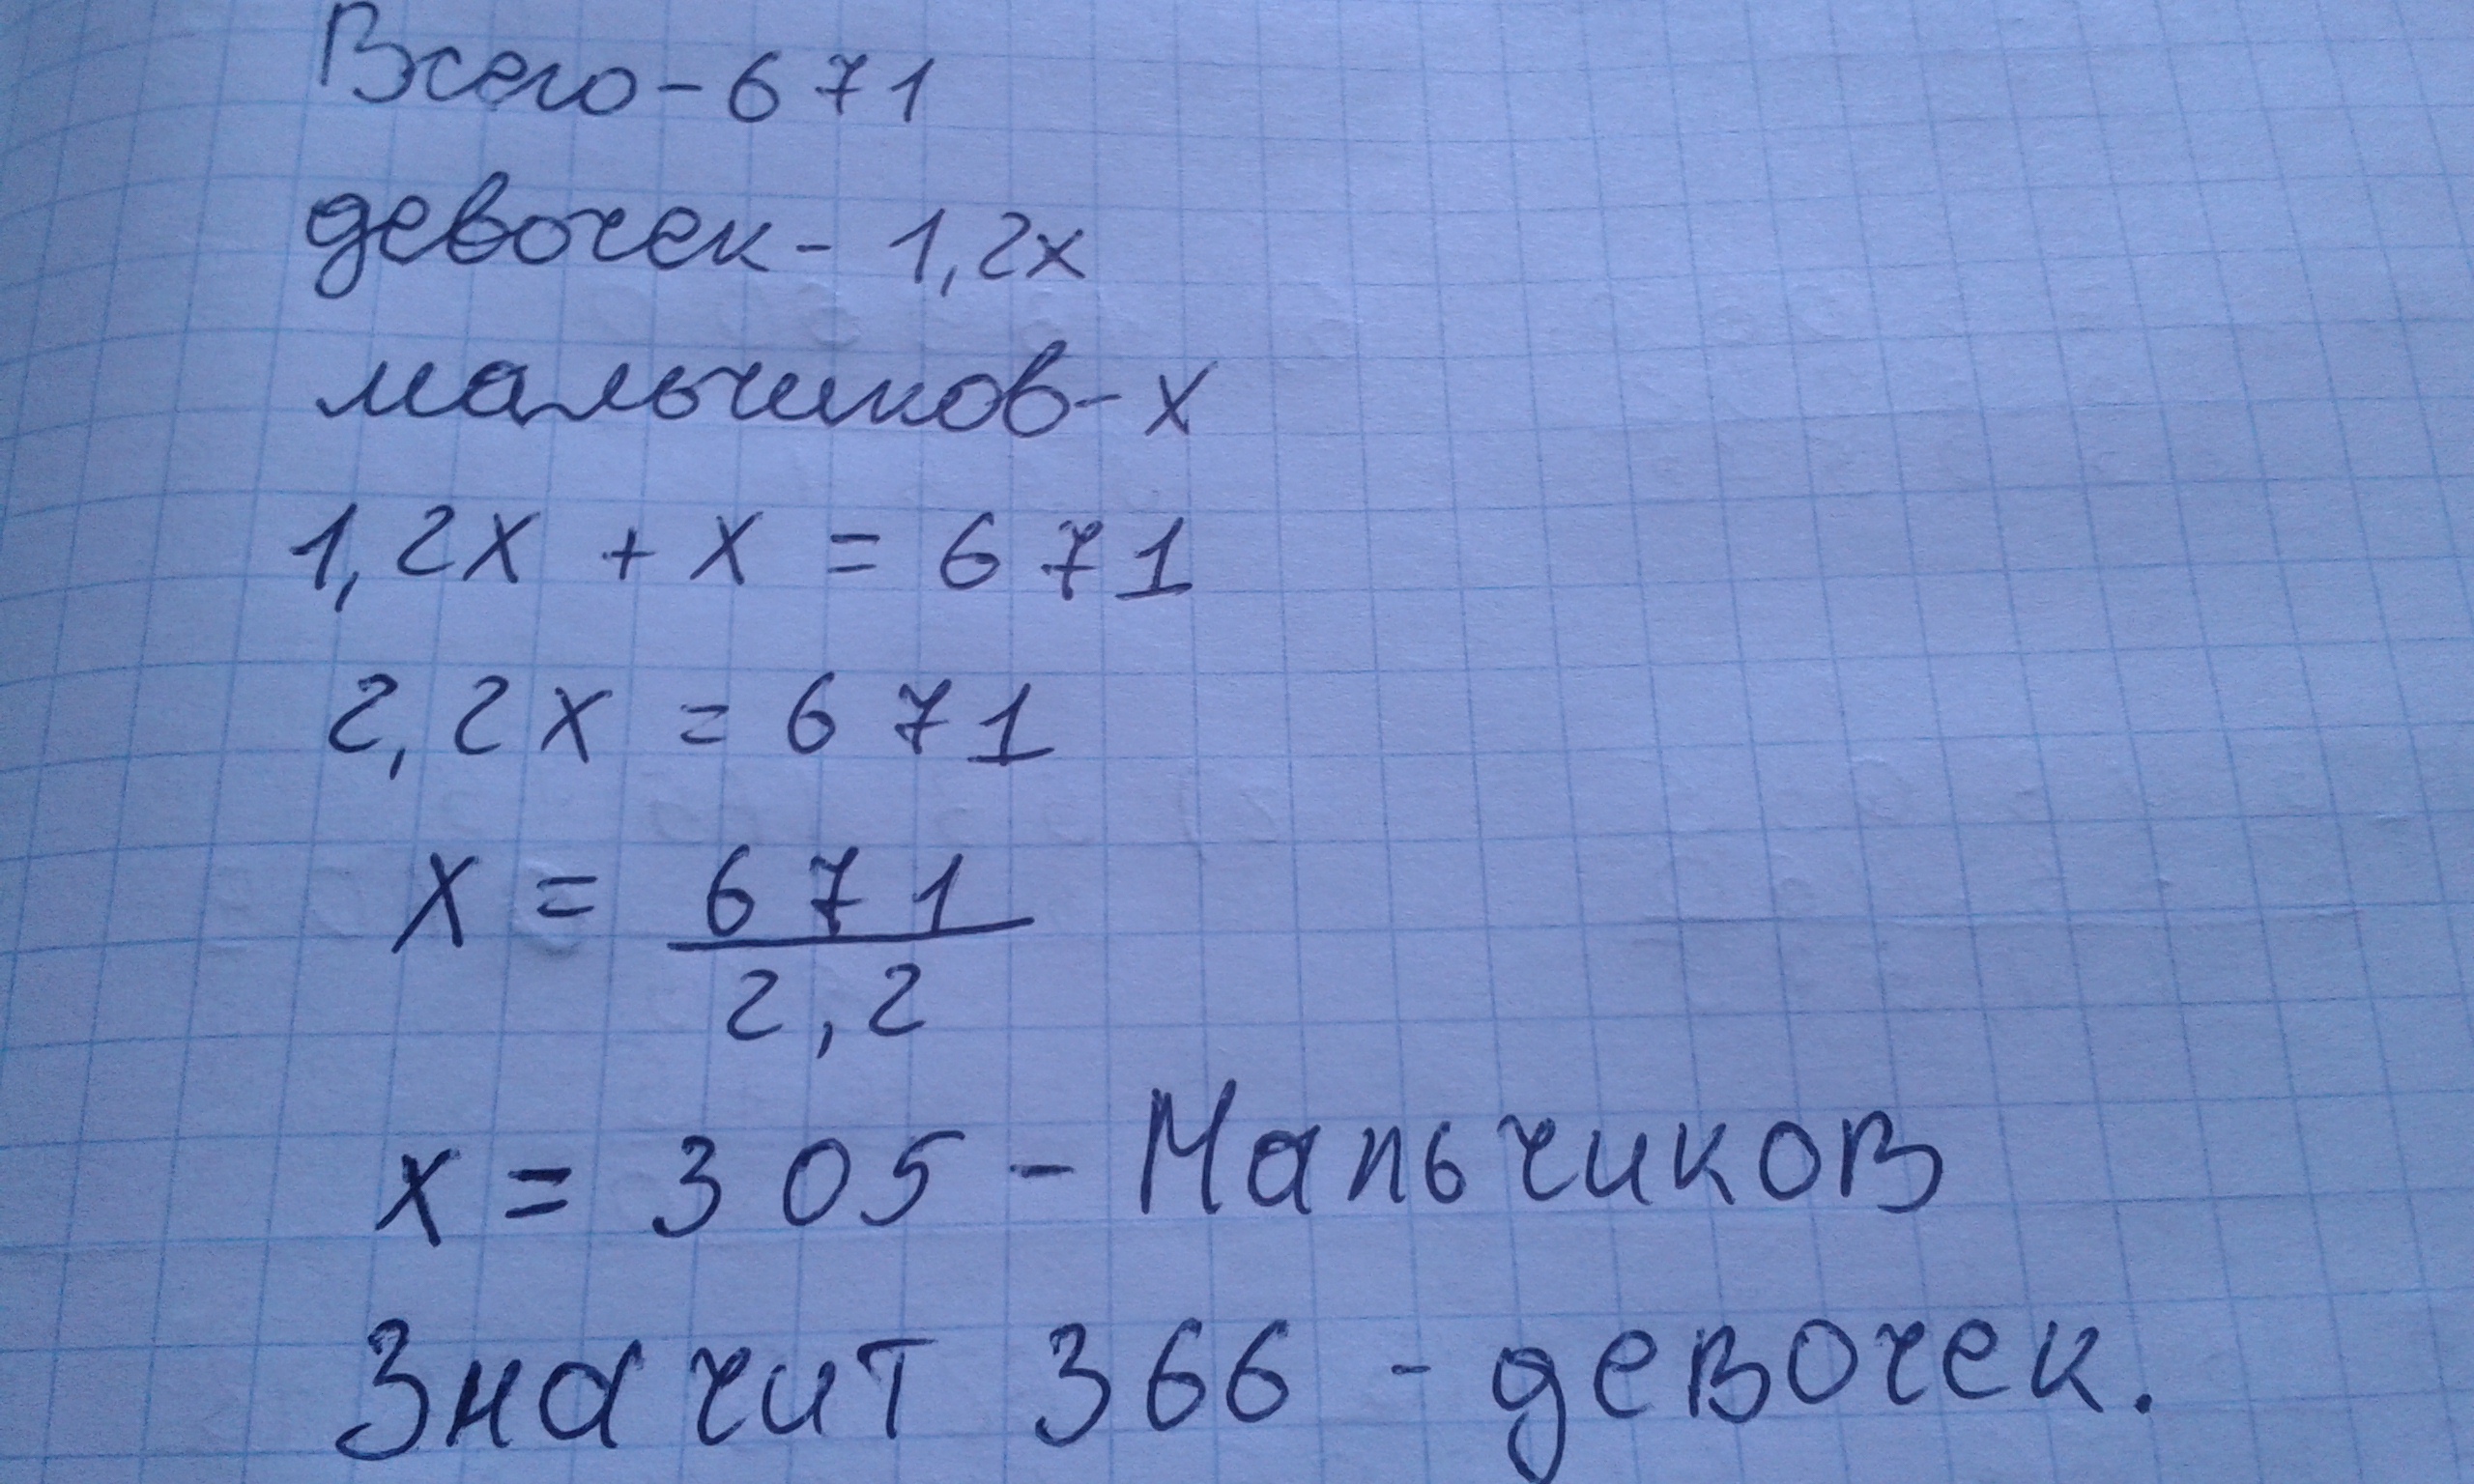 Всего - 671
девочек - 1,2x
мальчиков - x
1,2x + x = 671
2,2x = 671
x = 671/2,2
x = 305 - Мальчиков
Значит 366 - девочек.